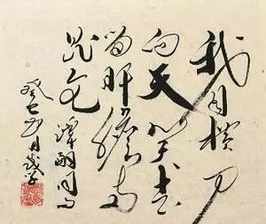 我自横刀
向天笑去
留肝膽两
昆仑 譚嗣同句
癸巳月